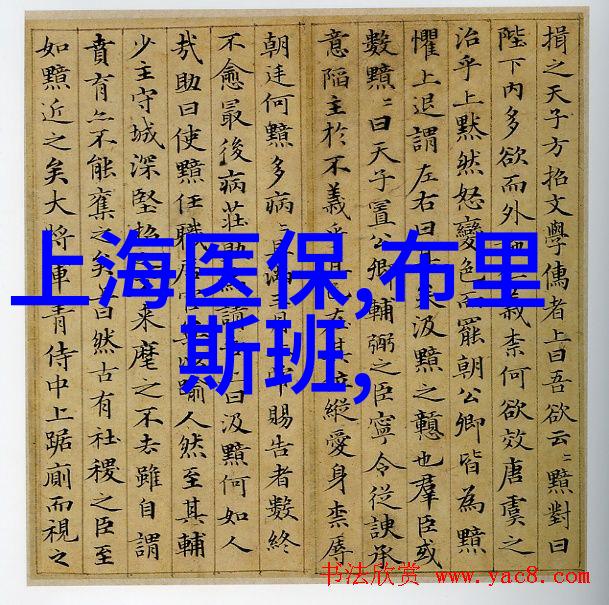 上海医保,布里
斯班,
揖之天子方招文學儒者上曰吾欲云〻黯對曰
陛下內多欲而外義柰何欲效唐虞之
治乎上黙然怒變色而罷朝公卿皆為黯
懼上退謂左右曰汲黯之戇也羣臣或
數黯〻曰天子置公卿輔弼之臣寧令從諛承
意陷主於不義乎且已在其位縱愛身柰辱
朝廷何黯多病〻且滿三月賜告者數終
不愈最後病莊助請曰汲黯何如人
哉助曰使黯任職居踰人然至其輔
少主守城深堅招来麾之不去雖自謂
賁育亦不能奪之矣曰然古有社稷之臣至
如黯近之矣大將軍青侍中上踞廁而視之
书法欣赏 www.yac8.com